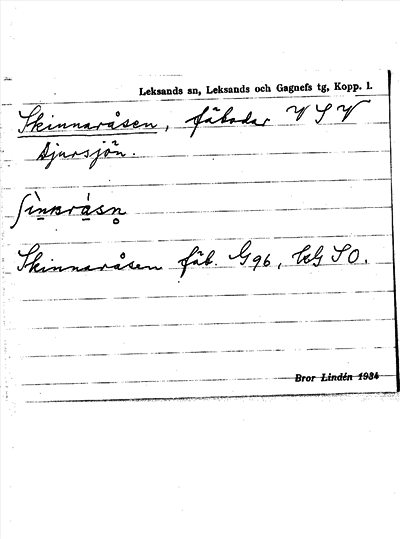 Leksands sn, Leksands och Gagnefs tg, Kopp. l.
Skinnaråsen, fäbodar V S V
Djursjön.
Skinnaråsen fäb. G96, S O.
Bror Lindén 1934